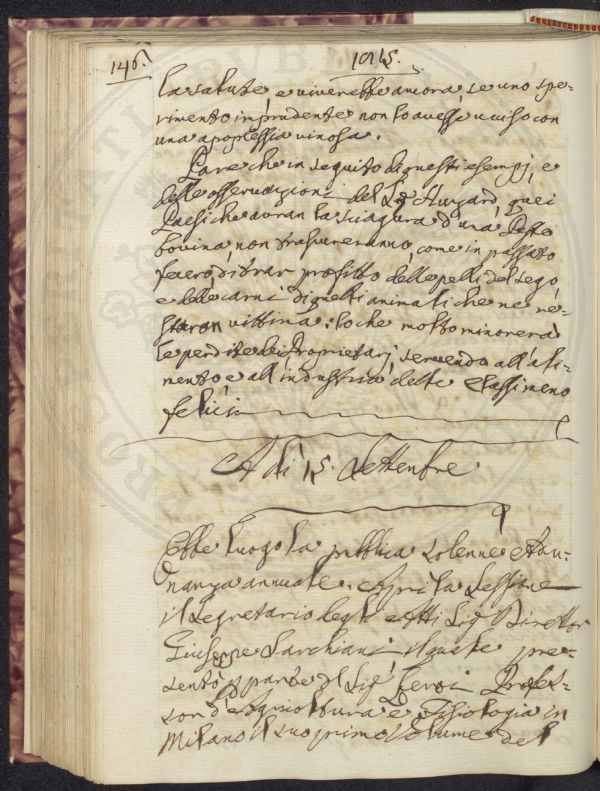 146.
1815.
la salute, e viverebbe ancora, se uno spe-
rimento imprudente non lo avesse ucciso con
una apoplessia vinosa.
Pare che in seguito di questi esempj, e
delle osservazioni del Sig. Huzard, quei
Paesi che avran la sciagura d'una Peste
bovina, non trascureranno, come in passato
fecero, di trar profitto delle pelli, del sego,
e delle carni di quelli animali che ne re-
staron vittima: lo che molto minorerà
le perdite dei Proprietarj, servendo all'ali-
mento e all'industria delle Classi meno
felici
A dì 15. Settembre
Ebbe luogo la pubblica solenne Adu-
nanza annuale. Aprì la Sessione
il Segretario degli Atti Sig. Direttor
Giuseppe Sarchiani, il quale pre-
sentò p. parte del Sig. Profes-
sor d'Agricoltura e Fisiologia in
Milano il suo primo Volume del